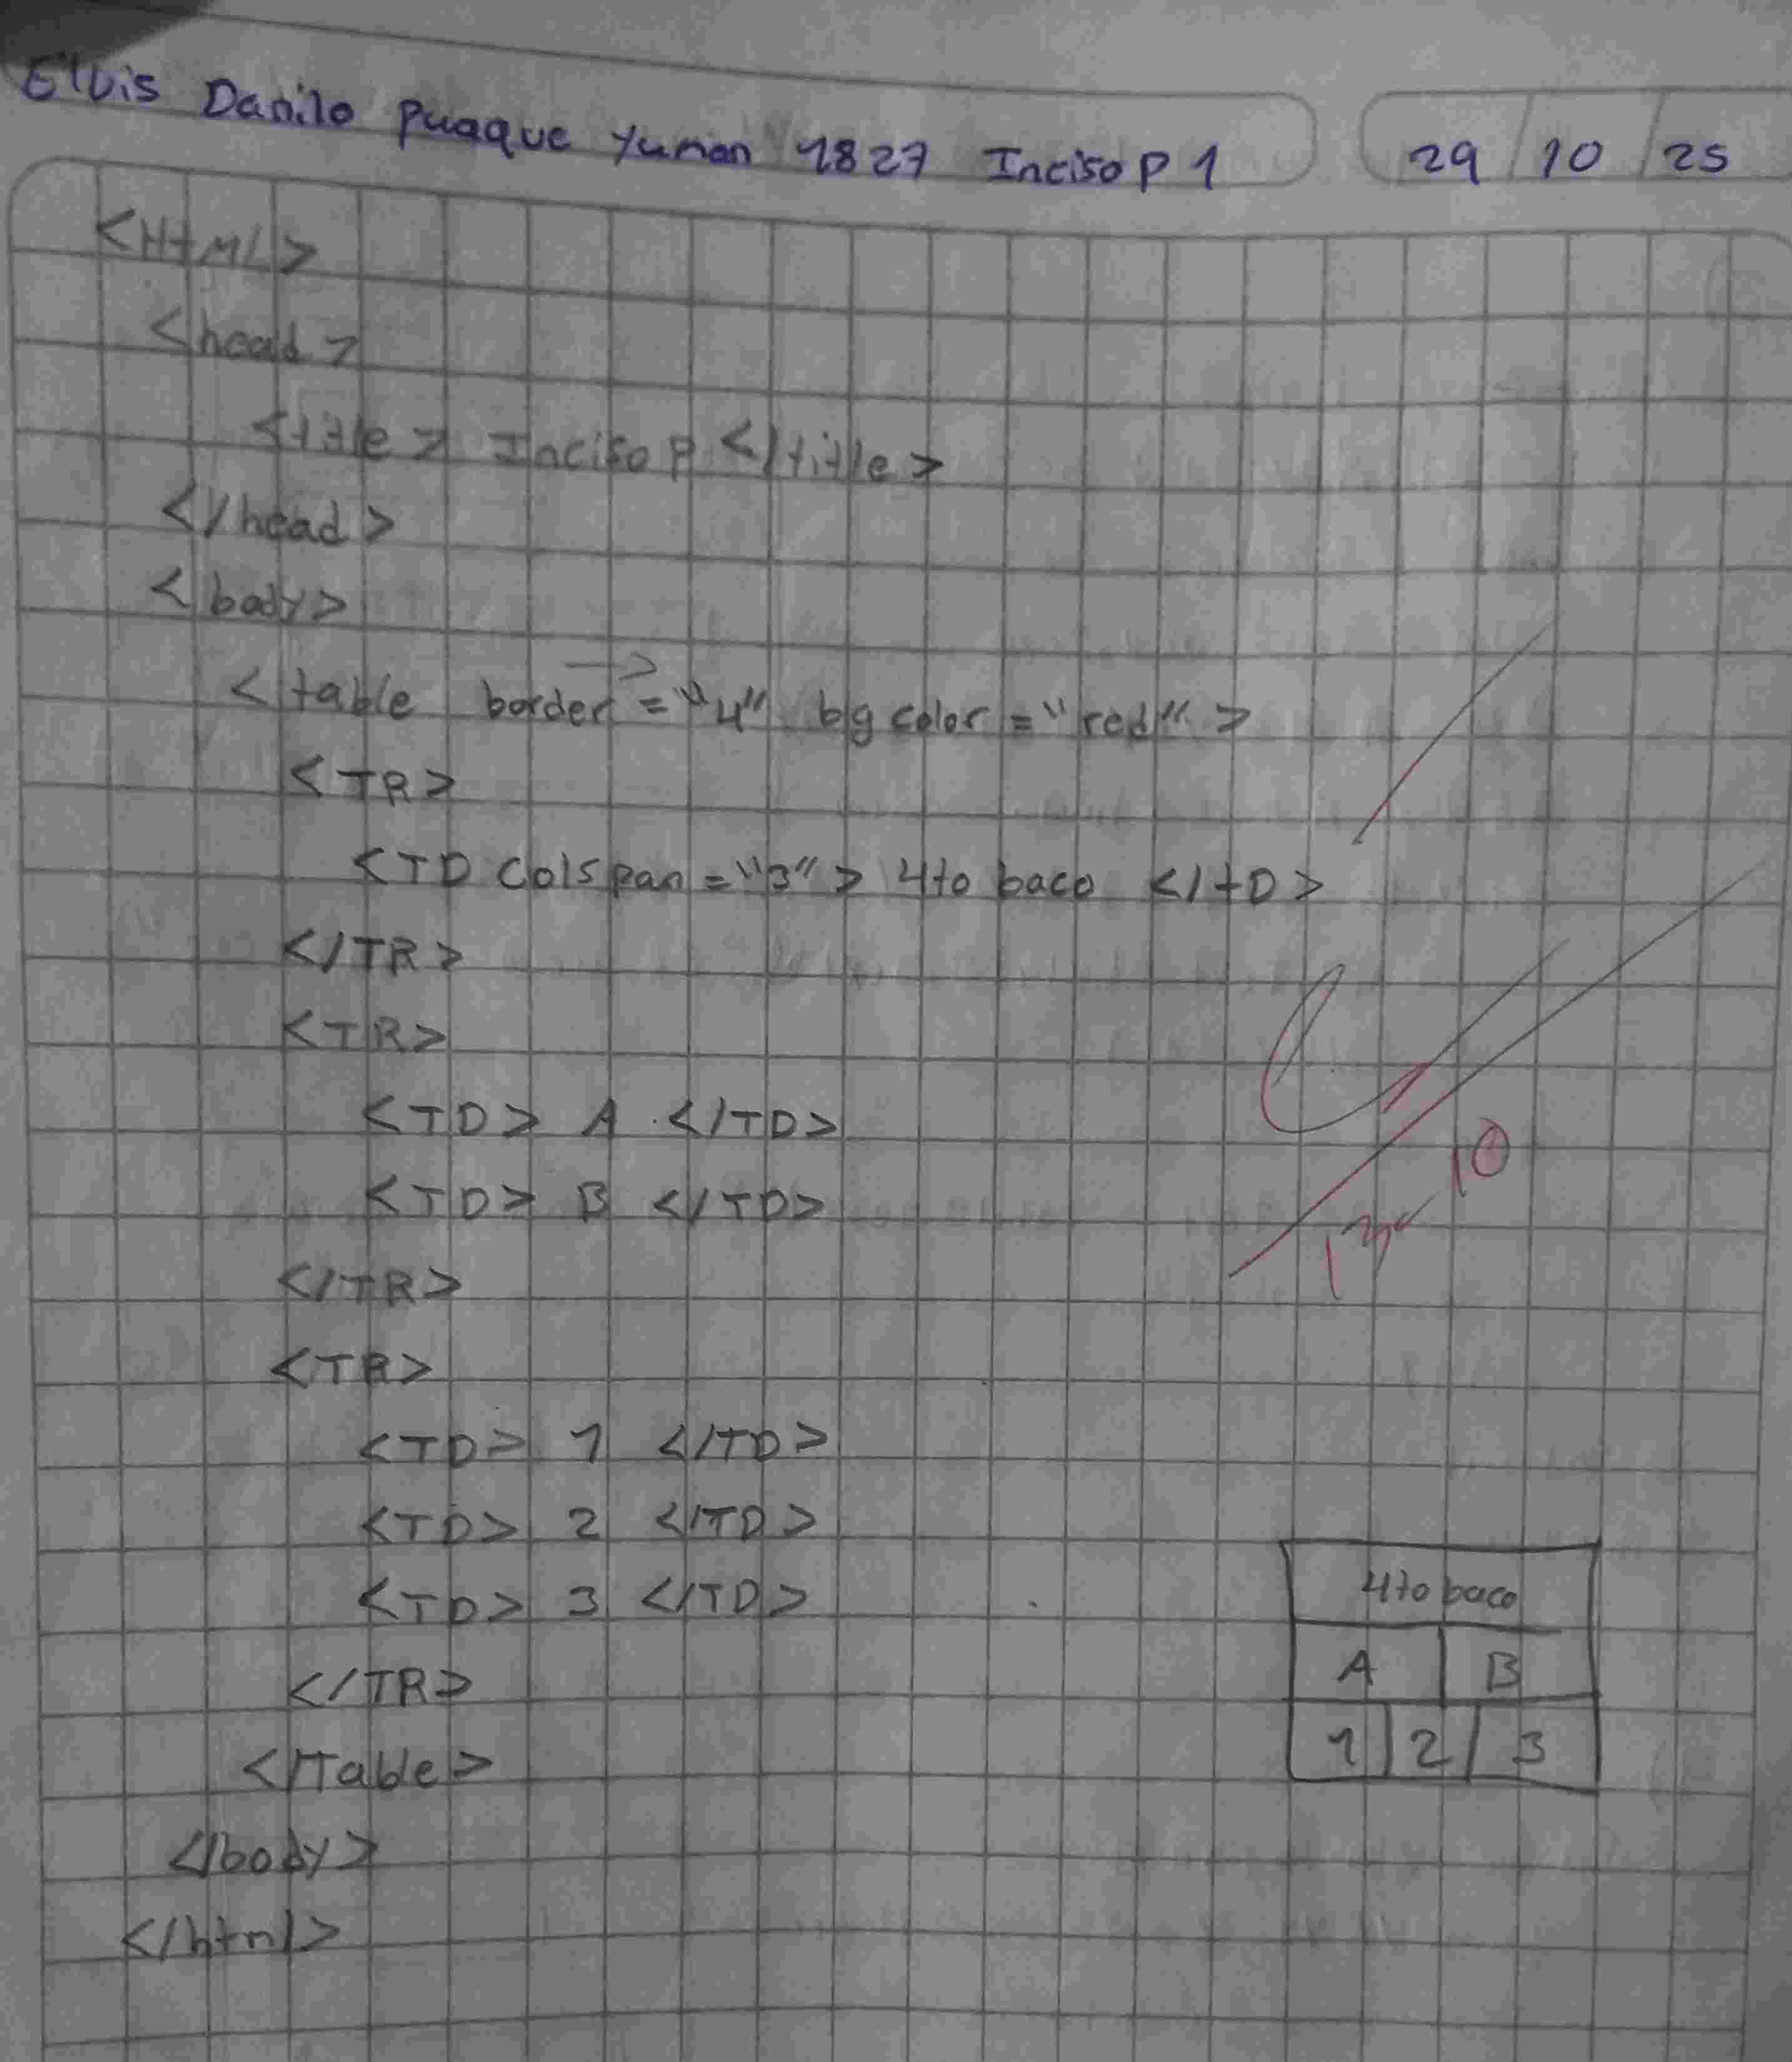 Elvis Danilo Puaque Yuman 1827 Inciso P 1
29 / 10 / 25
<HtML>
<head>
<title> Inciso P </title>
</head>
<body>
<table border = "4" bgcolor = "red" >
<TR>
<TD Colspan = "3" > 4to baco </tD>
</TR>
<TR>
<TD> A </TD>
<TD> B </TD>
</TR>
<TR>
<TD> 1 </TD>
<TD> 2 </TD>
<TD> 3 </TD>
</TR>
</Table>
</body>
</html>
10
4to baco
A B
1 2 3